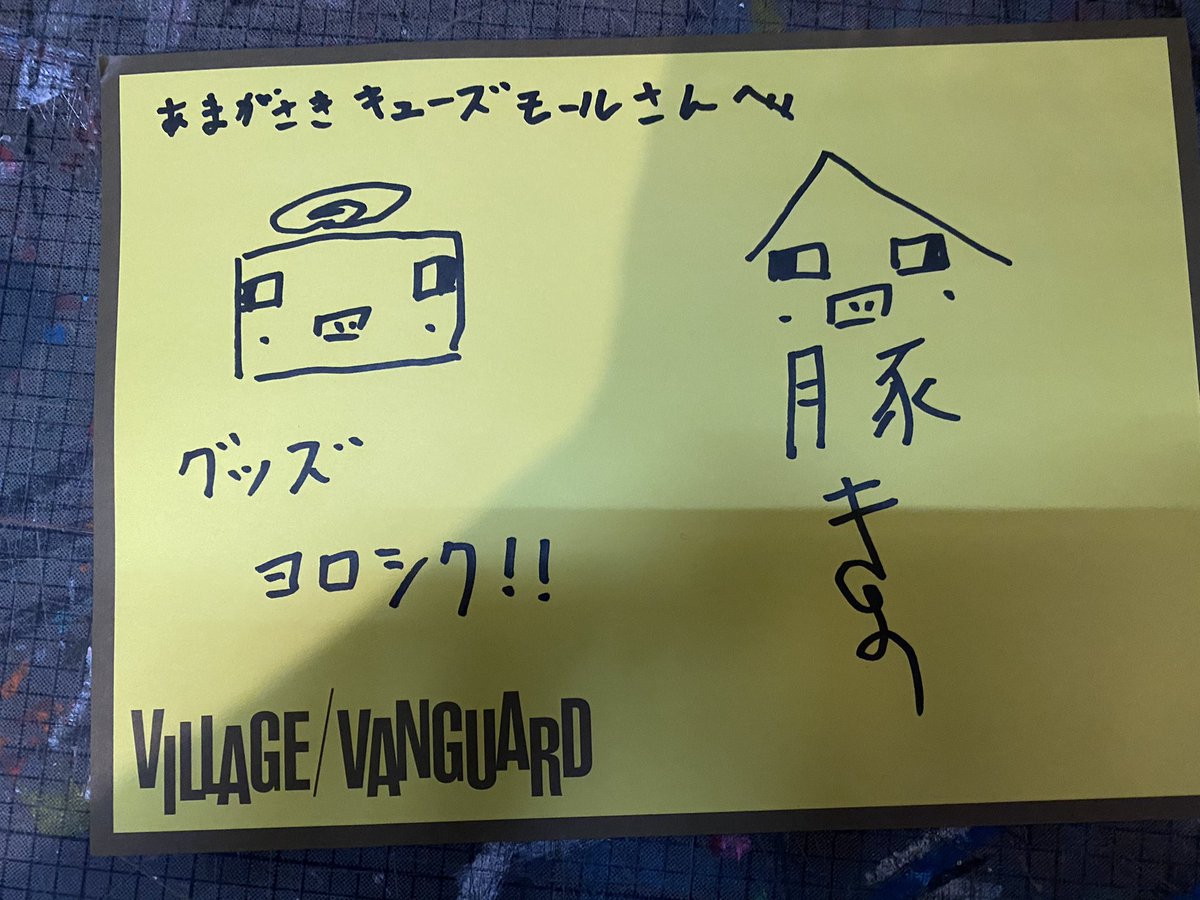 あまがさき キューズモールさんへ
豚
グッズ
ヨロシク!!
VILLAGE/VANGUARD